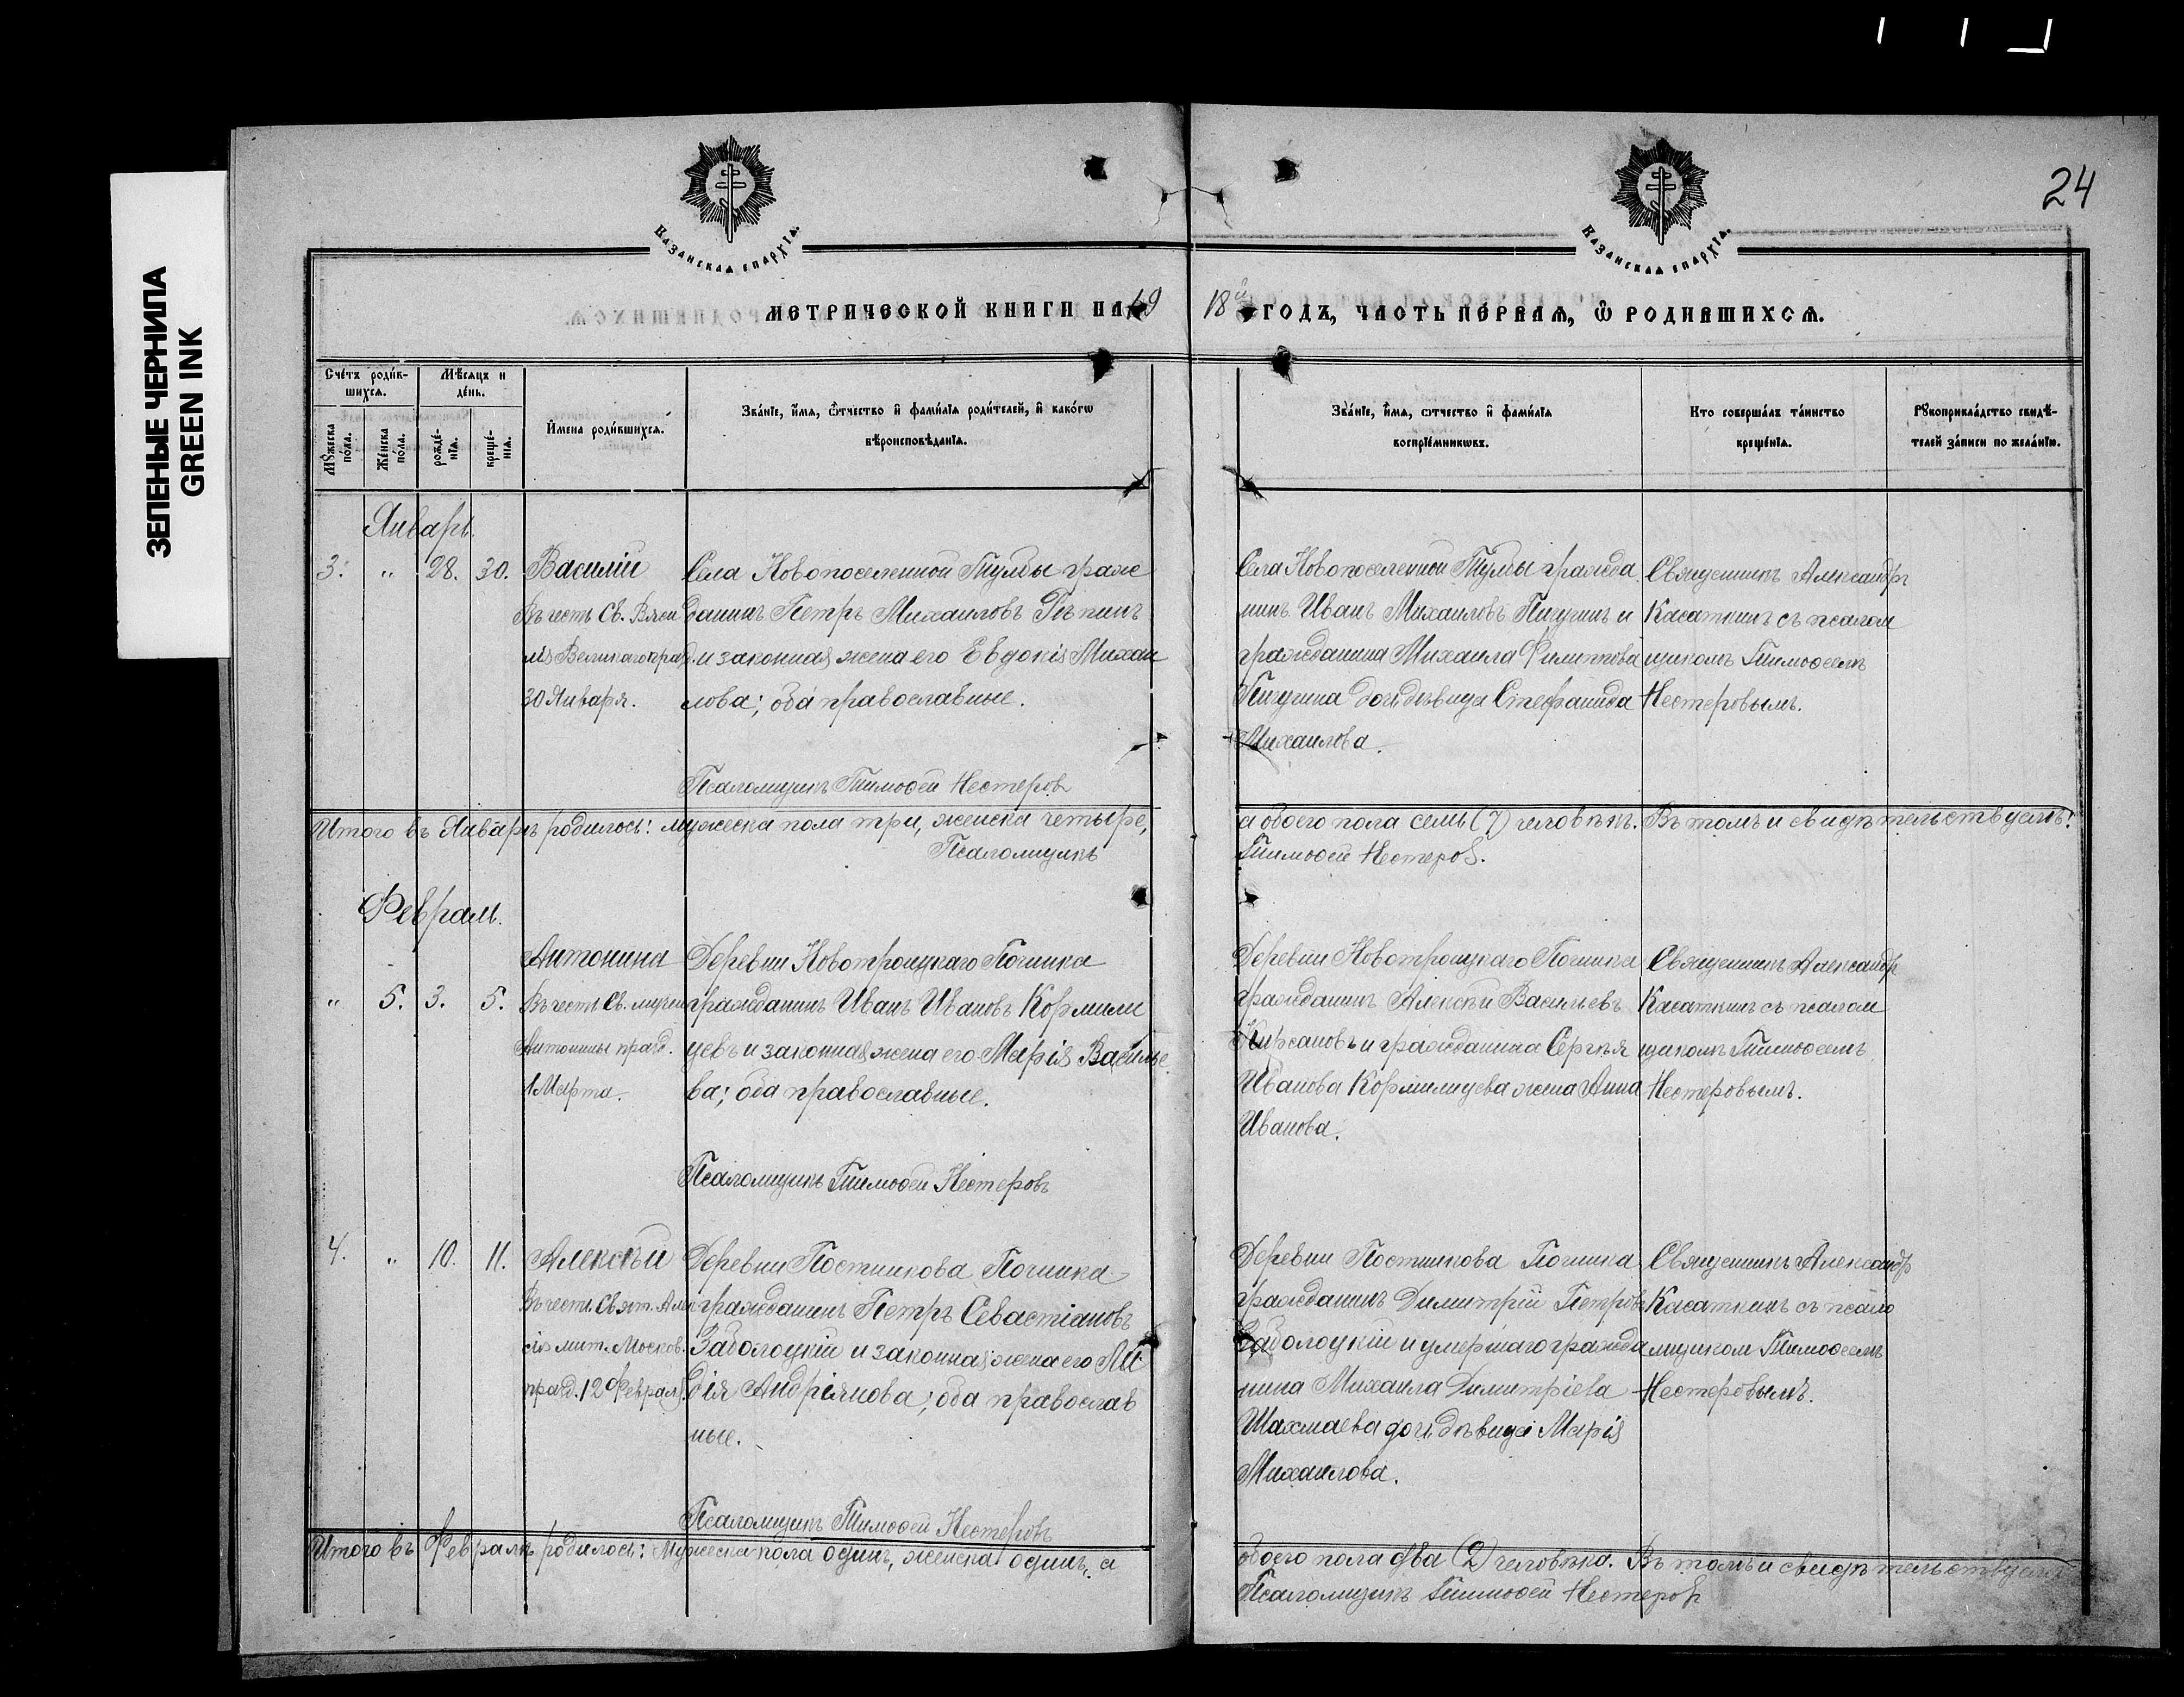 ЗЕЛЕНЫЕ ЧЕРНИЛА
GREEN INK
24
Казанская епархїя.
Казанская епархїя.
МЕТРИЧЕСКОЙ КНИГИ НА 19
18й ГОДЪ, ЧАСТЬ ПЕРВАЯ, Ѿ РОДИВШИХСЯ.
Сче́тъ роди́вшихся.
Мѣсяцъ и де́нь.
Мꙋ́жеска по́ла.
Же́нска по́ла.
рожде́нїя.
креще́нїя.
Имена роди́вшихся.
Зва́нїе, и́мя, ѻ́тчество и фами́лїя роди́телей, и како́гѡ
вѣроисповѣ́данїя.
Зва́нїе, и́мя, ѻ́тчество и фами́лїя
воспрїе́мникѡвъ.
Кто соверша́лъ та́инство
креще́нїя.
Рꙋкоприкла́дство свидѣ́-
телей за́писи по жела́нїю.
Январь.
3. „ 28. 30. Василій
Въ честь Св. Васи
лія Великаго празд.
30 Января.
Села Новопоселенной Тумбы граж
данинъ Петръ Михаиловъ
и законная жена его Евдокія Михаи
лова; оба православные.
Псаломщикъ Тимоѳей Нестеровъ
Села Новопоселенной Тумбы гражда
нинъ Иванъ Михаиловъ Пичугинъ и
гражданина Михаила Филиппова
Пичугина дочь дѣвица Стефанида
Михаилова.
Священникъ Александръ
Касаткинъ съ псалом
щикомъ Тимоѳеемъ
Нестеровымъ.
Итого въ Январѣ родилось: мужеска пола три, женска четыре,
Псаломщикъ
а обоего пола семь (7) человѣкъ. Въ томъ и свидѣтельствуемъ:
Тимоѳей Нестеровъ.
Февраль.
„ 5. 3. 5. Антонина
Въ честь Св. мучен
Антонины празд.
1 Марта.
Деревни Новотроицкаго Починка
гражданинъ Иванъ Ивановъ Кормили
цевъ и законная жена его Марія Василье
ва; оба православные.
Псаломщикъ Тимоѳей Нестеровъ
Деревни Новотроицкаго Починка
гражданинъ Алексѣй Васильевъ
Кирсановъ и гражданина Сергѣя
Иванова Кормилицева жена Анна
Иванова.
Священникъ Александръ
Касаткинъ съ псалом
щикомъ Тимоѳеемъ
Нестеровымъ.
4. „ 10. 11. Алексѣй
Въ честь Свят. Алек
сія мит. Москов.
празд. 12 Февраля.
Деревни Постникова Починка
гражданинъ Петръ Севастіановъ
Заболоцкій и законная жена его Ли
дія Андріянова; оба православ
ные.
Псаломщикъ Тимоѳей Нестеровъ
Деревни Постникова Починка
гражданинъ Димитрій Петровъ
Заболоцкій и умершаго гражда
нина Михаила Димитріева
Шахмаева дочь дѣвица Марія
Михаилова.
Священникъ Александръ
Касаткинъ съ псало
мщикомъ Тимоѳеемъ
Нестеровымъ.
Итого въ Февралѣ родилось: Мужеска пола одинъ, женска одинъ, а
обоего пола два (2) человѣка. Въ томъ и свидѣтельствуемъ
Псаломщикъ Тимоѳей Нестеровъ